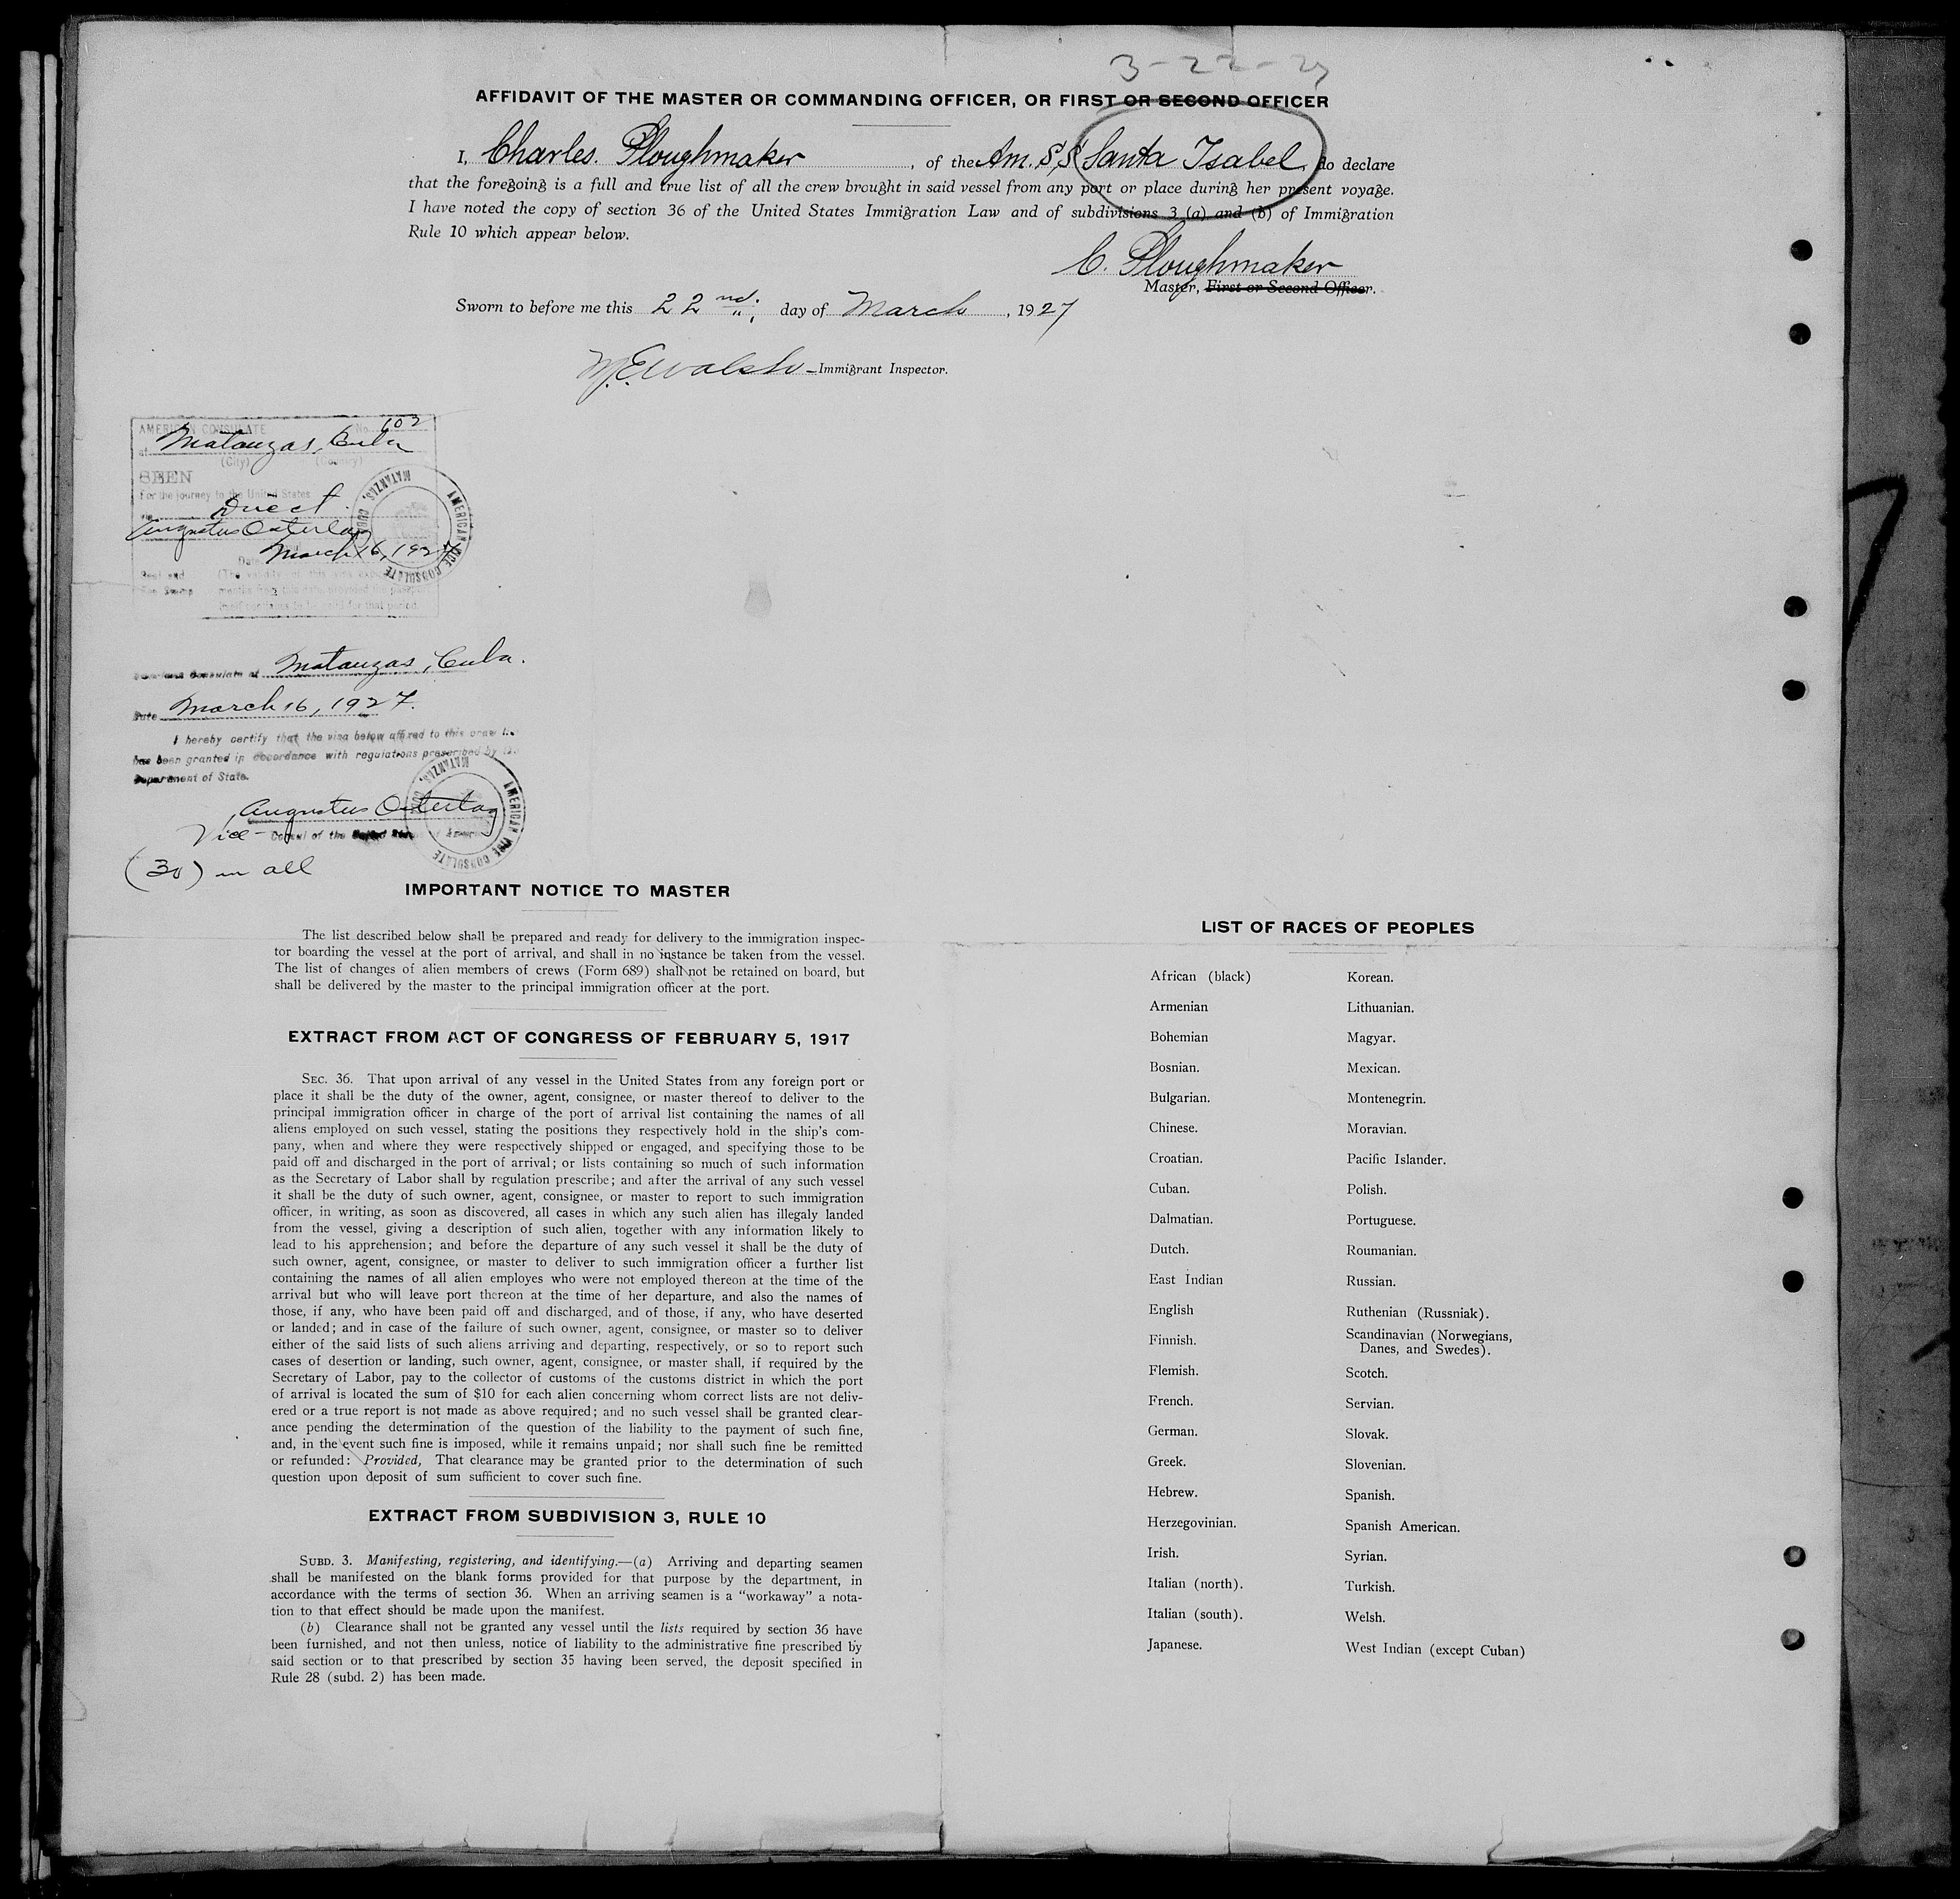 3-22-27
AFFIDAVIT OF THE MASTER OR COMMANDING OFFICER, OR FIRST OR SECOND OFFICER
I, Charles. Ploughmaker, of the Am. S.S. Santa Isabel, do declare
that the foregoing is a full and true list of all the crew brought in said vessel from any port or place during her present voyage.
I have noted the copy of section 36 of the United States Immigration Law and of subdivisions 3 (a) and (b) of Immigration
Rule 10 which appear below.
C. Ploughmaker
Master, First or Second Officer.
Sworn to before me this 22nd. day of March, 1927
M.E. Walsh Immigrant Inspector.
AMERICAN CONSULATE No. 602
at Matanzas, Cuba
(City) (Country)
SEEN
For the journey to the United States
via Direct.
Augustus Ostertag
Date March 16, 1927
Seal and (The validity of this visa
Fee Stamp months from this date, provided the passport
itself continues to be valid for that period.
AMERICAN VICE CONSULATE MATANZAS, CUBA
American Consulate at Matanzas, Cuba.
Date March 16, 1927.
I hereby certify that the visa below affixed to this crew
has been granted in accordance with regulations prescribed by
Department of State.
Augustus Ostertag
Vice- Consul of the United States of America
AMERICAN VICE CONSULATE MATANZAS,
(30) in all
IMPORTANT NOTICE TO MASTER
The list described below shall be prepared and ready for delivery to the immigration inspec-
tor boarding the vessel at the port of arrival, and shall in no instance be taken from the vessel.
The list of changes of alien members of crews (Form 689) shall not be retained on board, but
shall be delivered by the master to the principal immigration officer at the port.
EXTRACT FROM ACT OF CONGRESS OF FEBRUARY 5, 1917
SEC. 36. That upon arrival of any vessel in the United States from any foreign port or
place it shall be the duty of the owner, agent, consignee, or master thereof to deliver to the
principal immigration officer in charge of the port of arrival list containing the names of all
aliens employed on such vessel, stating the positions they respectively hold in the ship's com-
pany, when and where they were respectively shipped or engaged, and specifying those to be
paid off and discharged in the port of arrival; or lists containing so much of such information
as the Secretary of Labor shall by regulation prescribe; and after the arrival of any such vessel
it shall be the duty of such owner, agent, consignee, or master to report to such immigration
officer, in writing, as soon as discovered, all cases in which any such alien has illegaly landed
from the vessel, giving a description of such alien, together with any information likely to
lead to his apprehension; and before the departure of any such vessel it shall be the duty of
such owner, agent, consignee, or master to deliver to such immigration officer a further list
containing the names of all alien employes who were not employed thereon at the time of the
arrival but who will leave port thereon at the time of her departure, and also the names of
those, if any, who have been paid off and discharged, and of those, if any, who have deserted
or landed; and in case of the failure of such owner, agent, consignee, or master so to deliver
either of the said lists of such aliens arriving and departing, respectively, or so to report such
cases of desertion or landing, such owner, agent, consignee, or master shall, if required by the
Secretary of Labor, pay to the collector of customs of the customs district in which the port
of arrival is located the sum of $10 for each alien concerning whom correct lists are not deliv-
ered or a true report is not made as above required; and no such vessel shall be granted clear-
ance pending the determination of the question of the liability to the payment of such fine,
and, in the event such fine is imposed, while it remains unpaid; nor shall such fine be remitted
or refunded: Provided, That clearance may be granted prior to the determination of such
question upon deposit of sum sufficient to cover such fine.
EXTRACT FROM SUBDIVISION 3, RULE 10
SUBD. 3. Manifesting, registering, and identifying.—(a) Arriving and departing seamen
shall be manifested on the blank forms provided for that purpose by the department, in
accordance with the terms of section 36. When an arriving seamen is a "workaway" a nota-
tion to that effect should be made upon the manifest.
(b) Clearance shall not be granted any vessel until the lists required by section 36 have
been furnished, and not then unless, notice of liability to the administrative fine prescribed by
said section or to that prescribed by section 35 having been served, the deposit specified in
Rule 28 (subd. 2) has been made.
LIST OF RACES OF PEOPLES
African (black) Korean.
Armenian Lithuanian.
Bohemian Magyar.
Bosnian. Mexican.
Bulgarian. Montenegrin.
Chinese. Moravian.
Croatian. Pacific Islander.
Cuban. Polish.
Dalmatian. Portuguese.
Dutch. Roumanian.
East Indian Russian.
English Ruthenian (Russniak).
Finnish. Scandinavian (Norwegians,
Danes, and Swedes).
Flemish. Scotch.
French. Servian.
German. Slovak.
Greek. Slovenian.
Hebrew. Spanish.
Herzegovinian. Spanish American.
Irish. Syrian.
Italian (north). Turkish.
Italian (south). Welsh.
Japanese. West Indian (except Cuban)